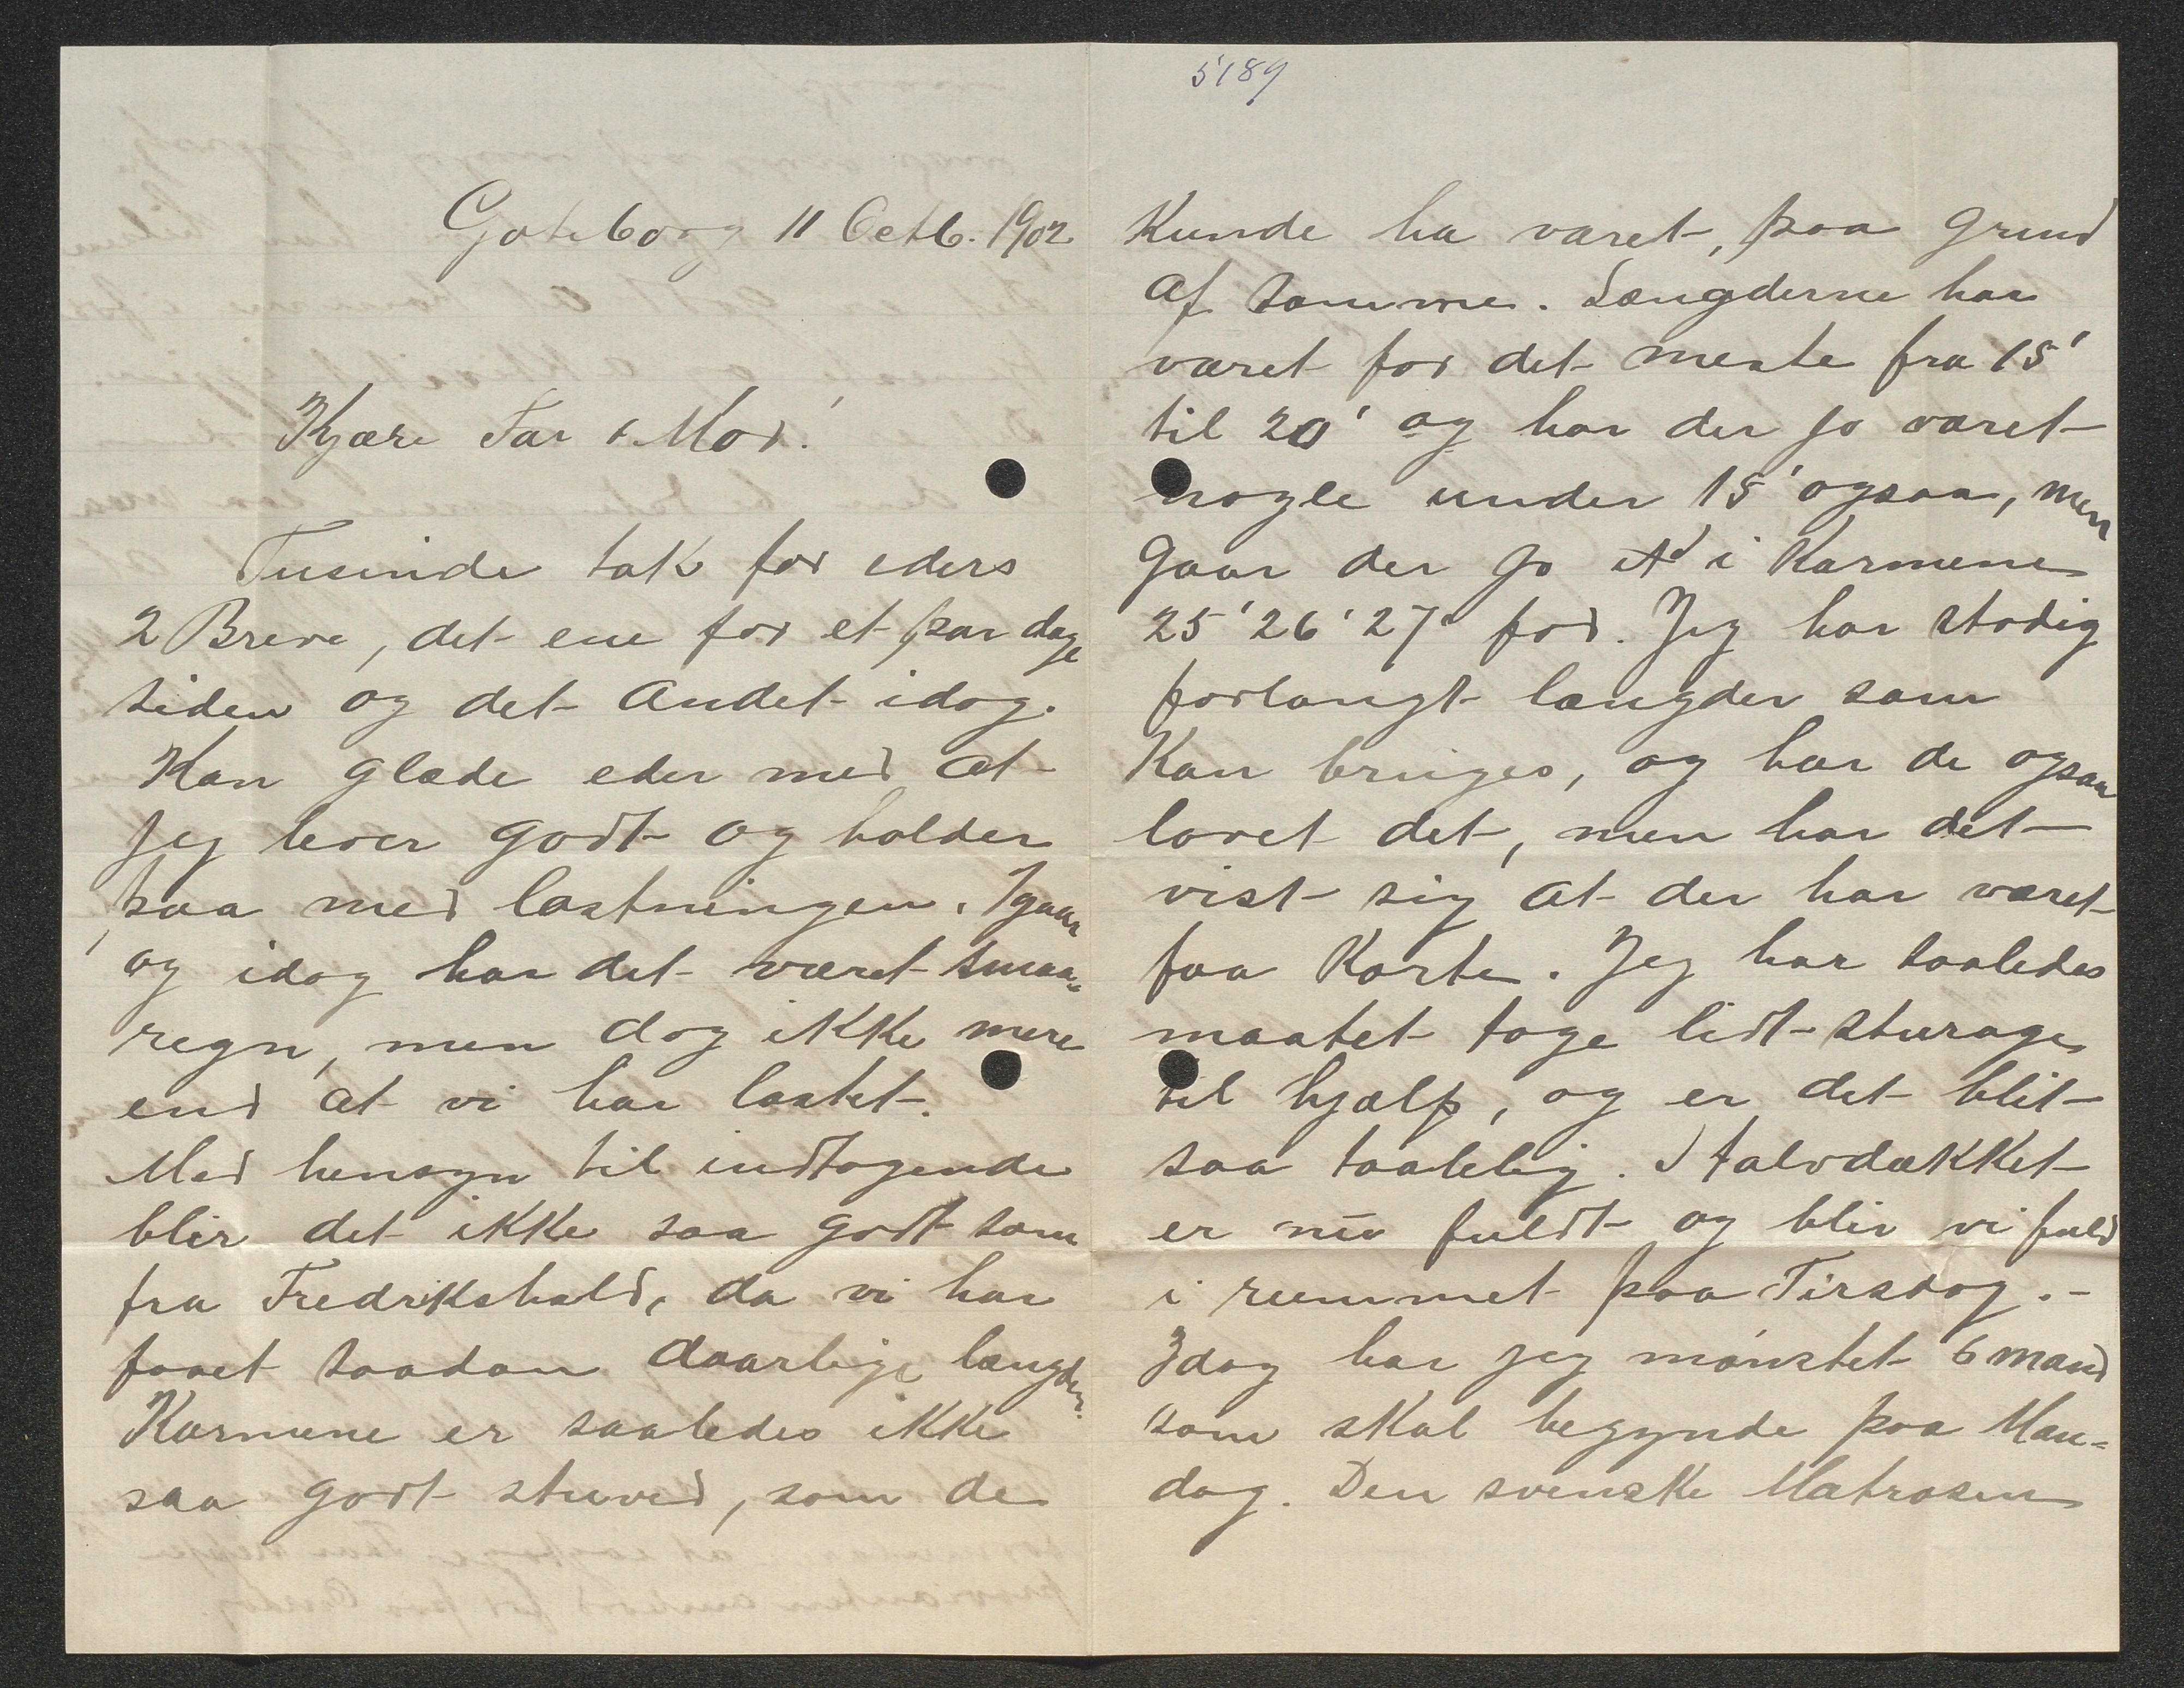 5189
Goteborg 11 Octb. 1902
Kjære Far & Mor!
Tusinde tak for eders
2 Breve, det ene for et par dage
siden og det andet idag.
Kan glæde eder med at
jeg lever godt og holder
paa med lastningen. Igaar
og idag har det været smaa-
regn, men dog ikke mere
end at vi har lastet.
Med hensyn til indtagende
blir det ikke saa godt som
fra Fredrikshald, da vi har
faaet saadan daarlige længder.
Karmene er saaledes ikke
saa godt stuved, som de
Kunde ha været, paa grund
af samme. Længderne har
været for det meste fra 15'
til 20' og har der jo været
nogle under 15' ogsaa, men
gaar der jo i Karmene
25' 26' 27' fod. Jeg har stadig
forlangt længder som
Kan bruges, og har de ogsaa
lovet det, men har det
vist sig at der har været
faa Korte. Jeg har saaledes
maatet tage lidt sturage
til hjælp, og er det blit
saa taalelig. Halvdækket
er nu fuldt og blir vi fuld
i rummet paa Tirsdag.-
Idag har jeg mønstet 6 mand
som skal begynde paa Man-
dag. Den svenske Matrosen